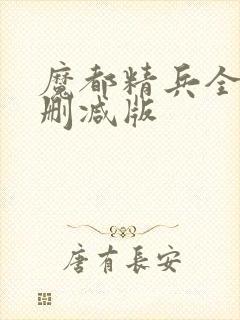 魔都精兵全
删减版
唐有長安